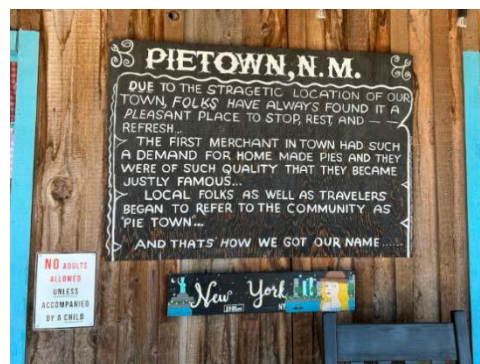 PIETOWN, N.M.
DUE TO THE STRAGETIC LOCATION OF OUR
TOWN, FOLKS HAVE ALWAYS FOUND IT A
PLEASANT PLACE TO STOP, REST, AND — —
REFRESH...
THE FIRST MERCHANT IN TOWN HAD SUCH
A DEMAND FOR HOME MADE PIES AND THEY
WERE OF SUCH QUALITY THAT THEY BECAME
JUSTLY FAMOUS...
LOCAL FOLKS AS WELL AS TRAVELERS
BEGAN TO REFER TO THE COMMUNITY AS
"PIE TOWN"...
AND THATS HOW WE GOT OUR NAME......
NO ADULTS
ALLOWED
UNLESS
ACCOMPANIED
BY A CHILD
New York